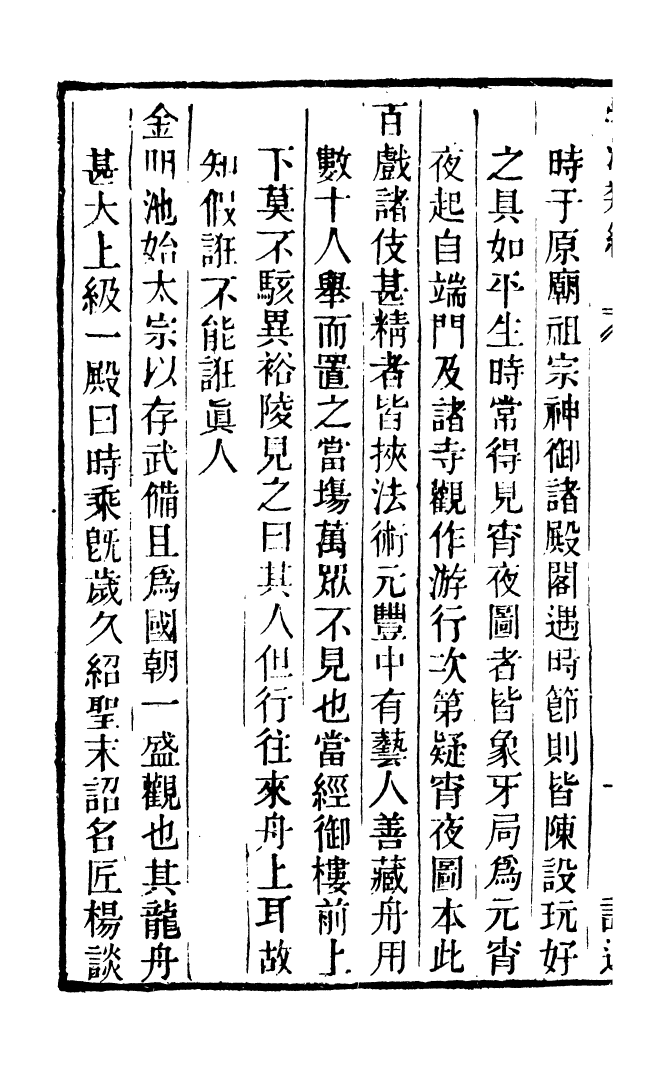 時于原廟祖宗神御諸殿閣遇時節則皆陳設玩好
之具如平生時常得見宵夜圖者皆象牙局爲元宵
夜起自端門及諸寺觀作游行次第疑宵夜圖本此
百戲諸伎甚精者皆挾法術元豐中有藝人善藏舟用
數十人舉而置之當塲萬眾不見也當經御樓前上
下莫不駭異裕陵見之曰其人但行往來舟上耳故
知假誑不能誑眞人
金明池始太宗以存武備且爲國朝一盛觀也其龍舟
甚大上級一殿曰時乘旣歲久紹聖末詔名匠楊談